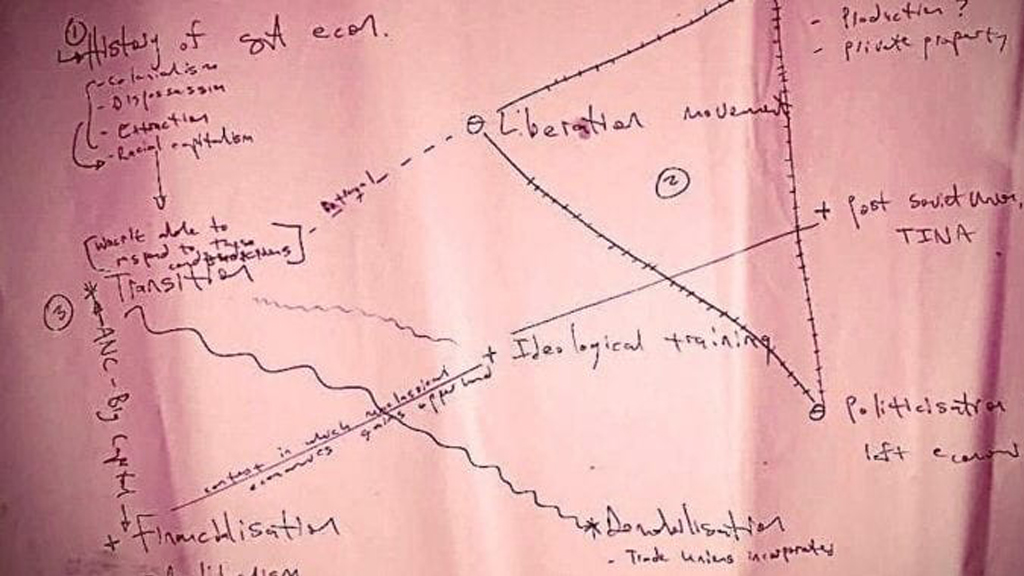 ①
History of SA econ.
- Colonialism
- Dispossession
- Extraction
- Racial capitalism
- Production ?
- private property
Liberation movement
②
Betrayal
to
to these
Transition
③
ANC - By capital
+ Post Soviet Union,
TINA
+ Ideological training
context in which neoclassical
economics gains upper hand
Politicisation
left econom
+ Financialisation
- Trade Unions incorporated